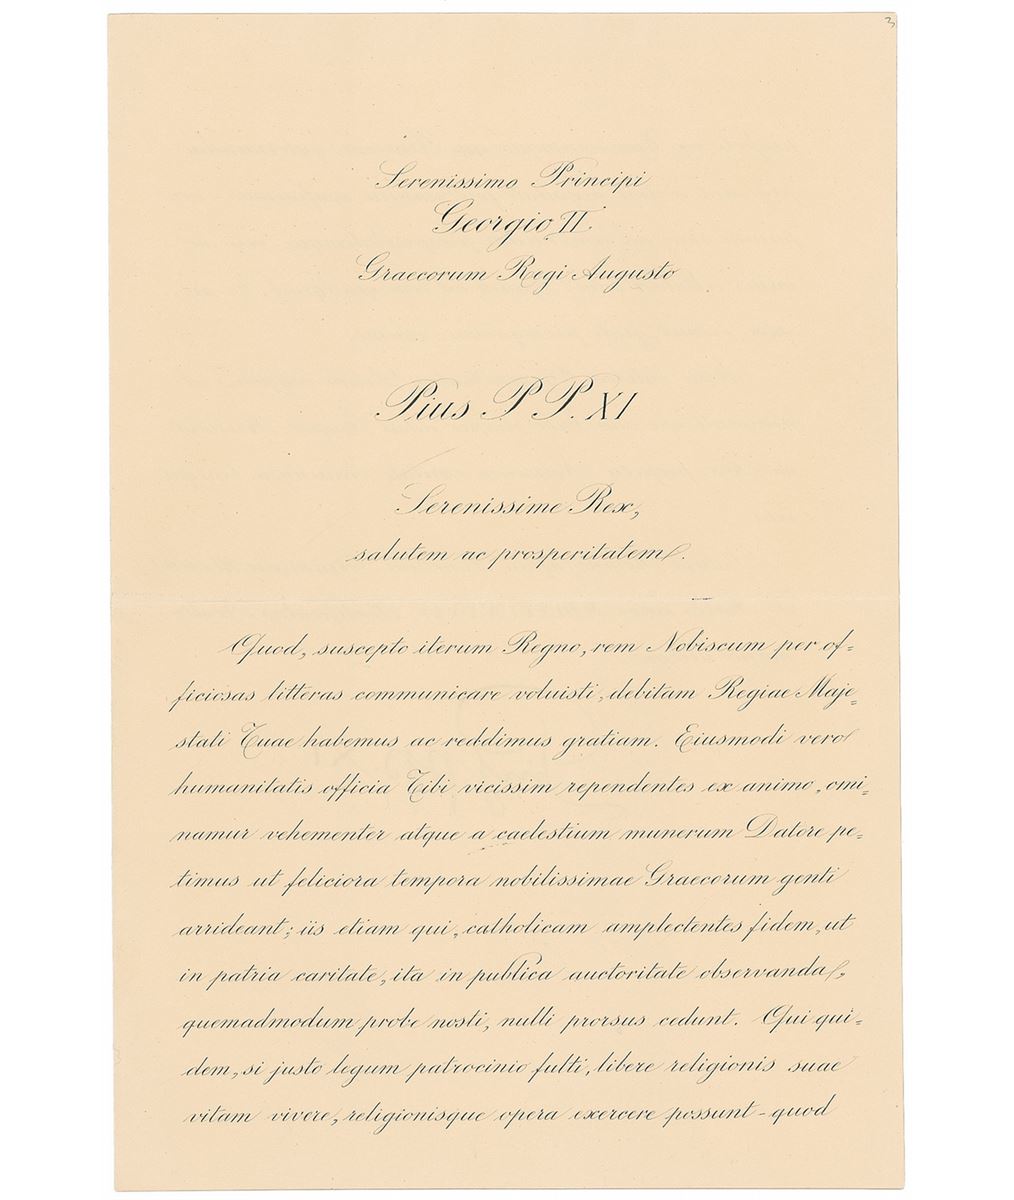 3
Serenissimo Principi
Georgio II.
Graecorum Regi Augusto
Pius P P. XI
Serenissime Rex,
salutem ac prosperitatem.
Quod, suscepto iterum Regno, rem Nobiscum per of=
ficiosas litteras communicare voluisti, debitam Regiae Maje=
stati Tuae habemus ac reddimus gratiam. Eiusmodi vero
humanitatis officia Tibi vicissim rependentes ex animo, omi=
namur vehementer atque a caelestium munerum Datore pe=
timus ut feliciora tempora nobilissimae Graecorum genti
arrideant; iis etiam qui, catholicam amplectentes fidem, ut
in patria caritate, ita in publica auctoritate observanda,
quemadmodum probe nosti, nulli prorsus cedunt. Qui qui=
dem, si justo legum patrocinio fulti, libere religionis suae
vitam vivere, religionisque opera exercere possunt - quod